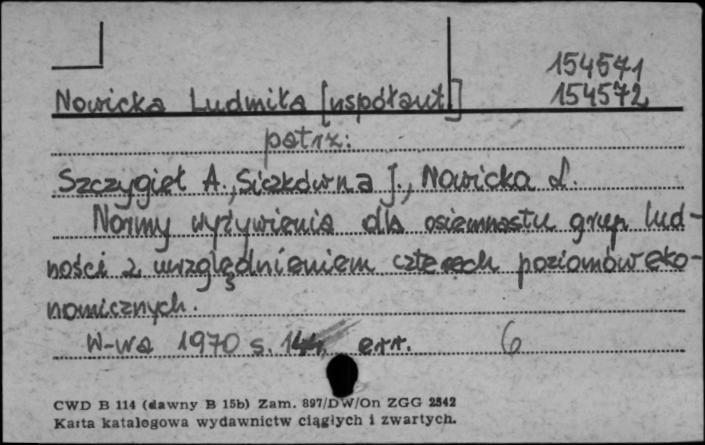 154571
154572
Nowicka Ludmiła [współaut]
patrz:
Szczygieł A., Siczkówna J., Nowicka L.
Normy wyżywienia dla osiemnastu grup lud-
ności z uwzględnieniem czterech poziomów eko-
nomicznych.
W-wa 1970 s. err. 6
CWD B 114 (dawny B 15b) Zam. 897/DW/On ZGG 2342
Karta katalogowa wydawnictw ciągłych i zwartych.